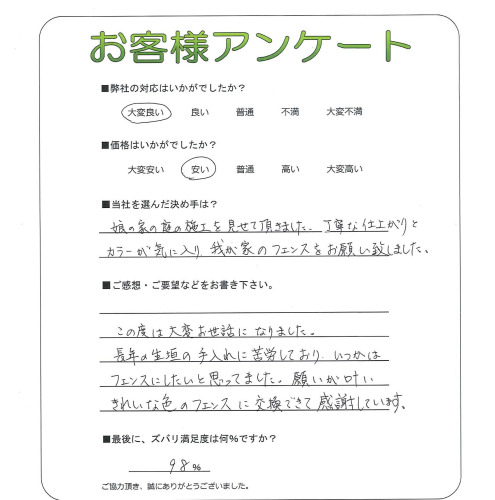 お客様アンケート
■弊社の対応はいかがでしたか？
大変良い 良い 普通 不満 大変不満
■価格はいかがでしたか？
大変安い 安い 普通 高い 大変高い
■当社を選んだ決め手は？
娘の家の庭の施工を見せて頂きました。丁寧な仕上がりと
カラーが気に入り 我が家のフェンスをお願い致しました。
■ご感想・ご要望などをお書き下さい。
この度は大変お世話になりました。
長年の生垣の手入れに苦労しており いつかは
フェンスにしたいと思ってました。願いが叶い
きれいな色のフェンスに交換できて感謝しています。
■最後に、ズバリ満足度は何%ですか？
98%
ご協力頂き、誠にありがとうございました。